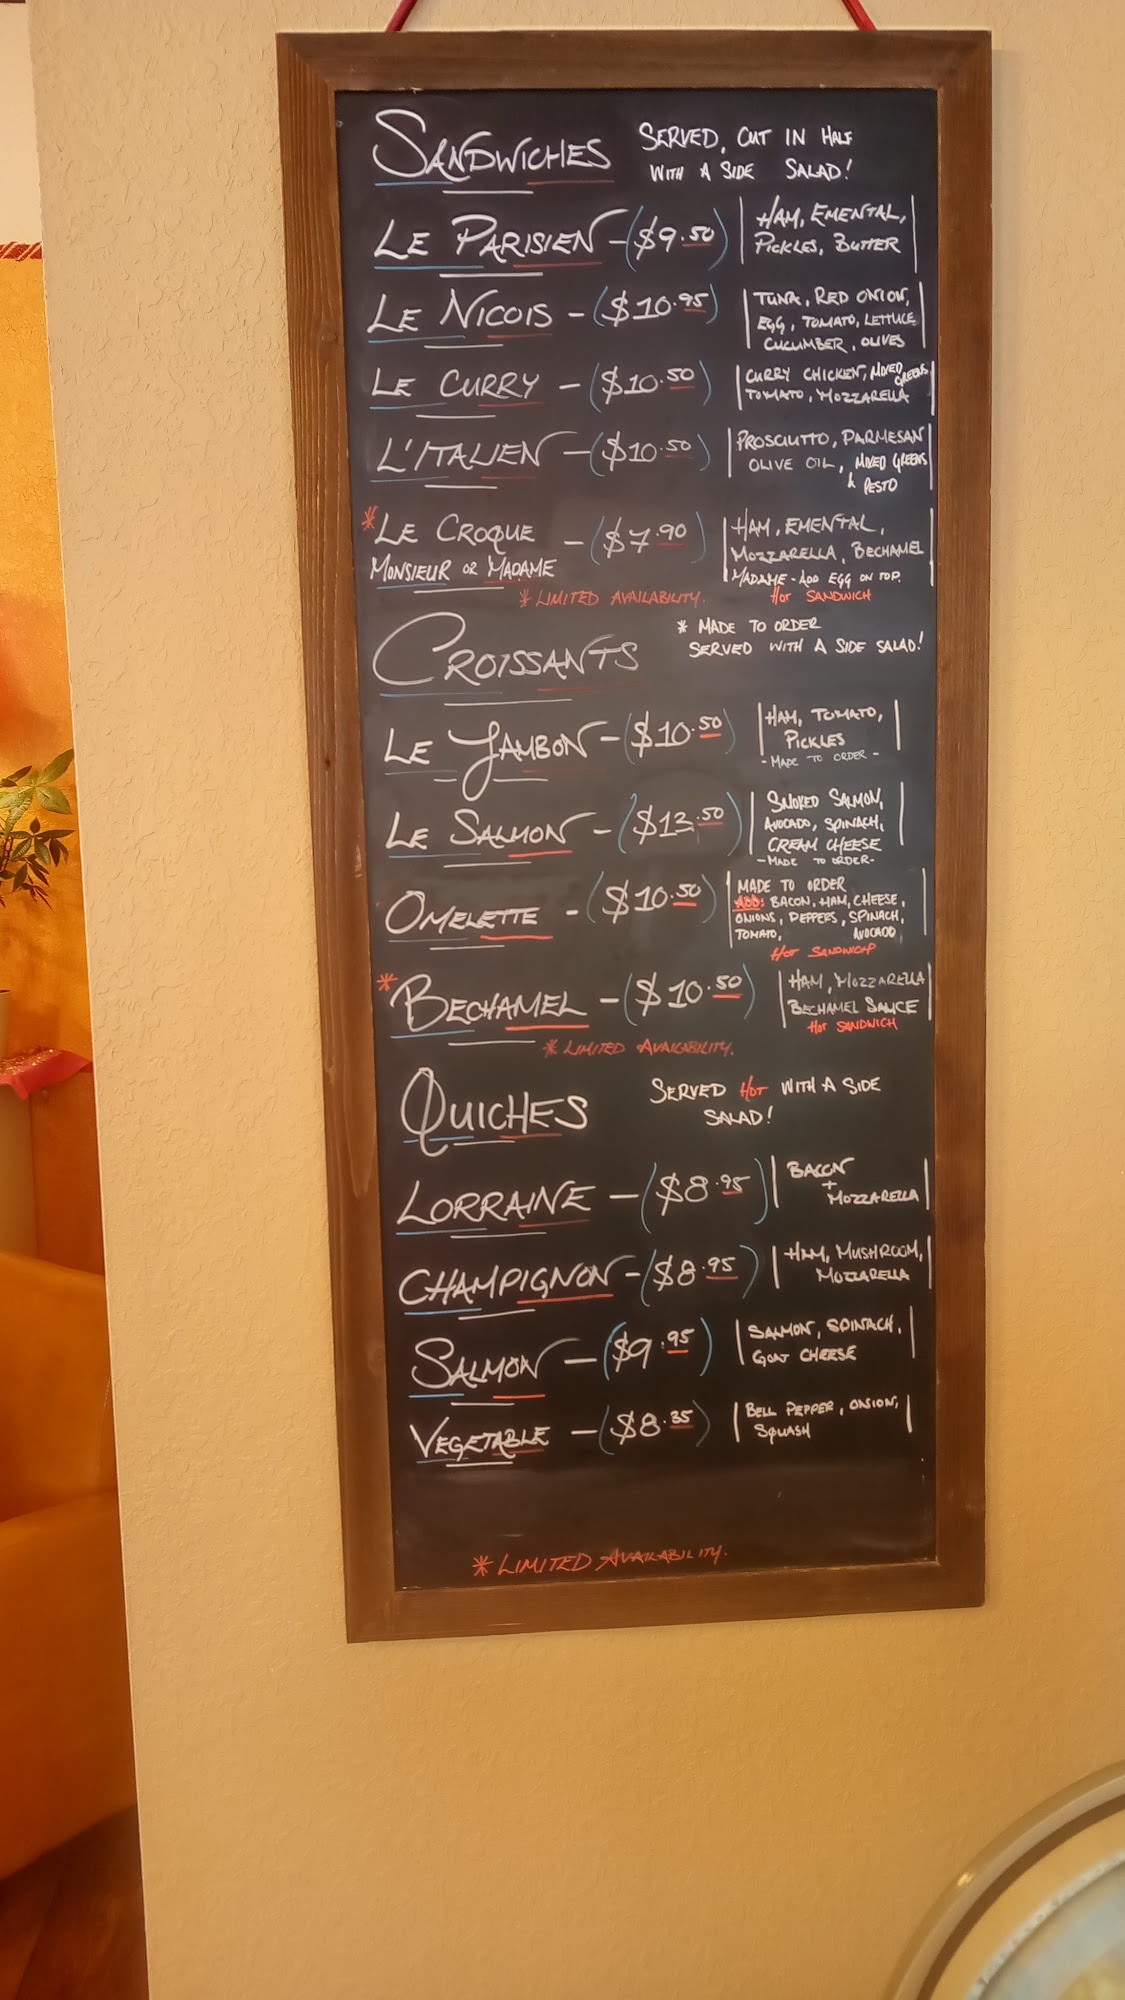 SANDWICHES
SERVED, CUT IN HALF
WITH A SIDE SALAD!
LE PARISIEN - ($9.50)
HAM, EMENTAL,
PICKLES, BUTTER
LE NICOIS - ($10.95)
TUNA, RED ONION,
EGG, TOMATO, LETTUCE
CUCUMBER, OLIVES
LE CURRY - ($10.50)
CURRY CHICKEN, MIXED GREENS
TOMATO, MOZZARELLA
L'ITALIEN - ($10.50)
PROSCIUTTO, PARMESAN
OLIVE OIL, MIXED GREENS
& PESTO
*LE CROQUE
MONSIEUR OR MADAME - ($7.90)
HAM, EMENTAL,
MOZZARELLA, BECHAMEL
MADAME - ADD EGG ON TOP.
HOT SANDWICH
* LIMITED AVAILABILITY.
CROISSANTS
* MADE TO ORDER
SERVED WITH A SIDE SALAD!
LE JAMBON - ($10.50)
HAM, TOMATO,
PICKLES
- MADE TO ORDER -
LE SALMON - ($13.50)
SMOKED SALMON,
AVOCADO, SPINACH,
CREAM CHEESE
- MADE TO ORDER -
OMELETTE - ($10.50)
MADE TO ORDER
ADD: BACON, HAM, CHEESE,
ONIONS, PEPPERS, SPINACH,
TOMATO, AVOCADO
HOT SANDWICH
*BECHAMEL - ($10.50)
HAM, MOZZARELLA
BECHAMEL SAUCE
HOT SANDWICH
* LIMITED AVAILABILITY.
QUICHES
SERVED HOT WITH A SIDE
SALAD!
LORRAINE - ($8.95)
BACON
+
MOZZARELLA
CHAMPIGNON - ($8.95)
HAM, MUSHROOM,
MOZZARELLA
SALMON - ($9.95)
SALMON, SPINACH,
GOAT CHEESE
VEGETABLE - ($8.35)
BELL PEPPER, ONION,
SQUASH
* LIMITED AVAILABILITY.